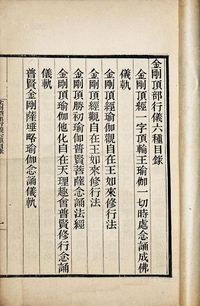 金剛頂部行儀六種目錄
金剛頂經一字頂輪王瑜伽一切時處念誦成佛
儀軌
金剛頂經瑜伽觀自在王如來修行法
金剛頂經觀自在王如來修行法
金剛頂勝初瑜伽普賢菩薩念誦法經
金剛頂瑜伽他化自在天理趣會普賢修行念誦
儀軌
普賢金剛薩埵略瑜伽念誦儀軌